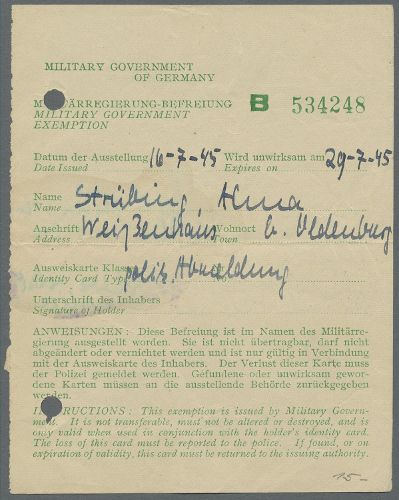 MILITARY GOVERNMENT
OF GERMANY
MILITÄRREGIERUNG-BEFREIUNG B 534248
MILITARY GOVERNMENT
EXEMPTION
Datum der Ausstellung 16-7-45 Wird unwirksam am 29-7-45
Date Issued Expires on
Name Strübing, Alma
Name
Anschrift Weißenhaus Wohnort b. Oldenburg
Address Town
Ausweiskarte Klasse poliz. Abmeldung
Identity Card Type
Unterschrift des Inhabers
Signature of Holder
ANWEISUNGEN: Diese Befreiung ist im Namen des Militärre-
gierung ausgestellt worden. Sie ist nicht übertragbar, darf nicht
abgeändert oder vernichtet werden und ist nur gültig in Verbindung
mit der Ausweiskarte des Inhabers. Der Verlust dieser Karte muss
der Polizei gemeldet werden. Gefundene oder unwirksam gewor-
dene Karten müssen an die ausstellende Behörde zurückgegeben
werden.
INSTRUCTIONS: This exemption is issued by Military Govern-
ment. It is not transferable, must not be altered or destroyed, and is
only valid when used in conjunction with the holder's identity card.
The loss of this card must be reported to the police. If found, or on
expiration of validity, this card must be returned to the issuing authority.
15-